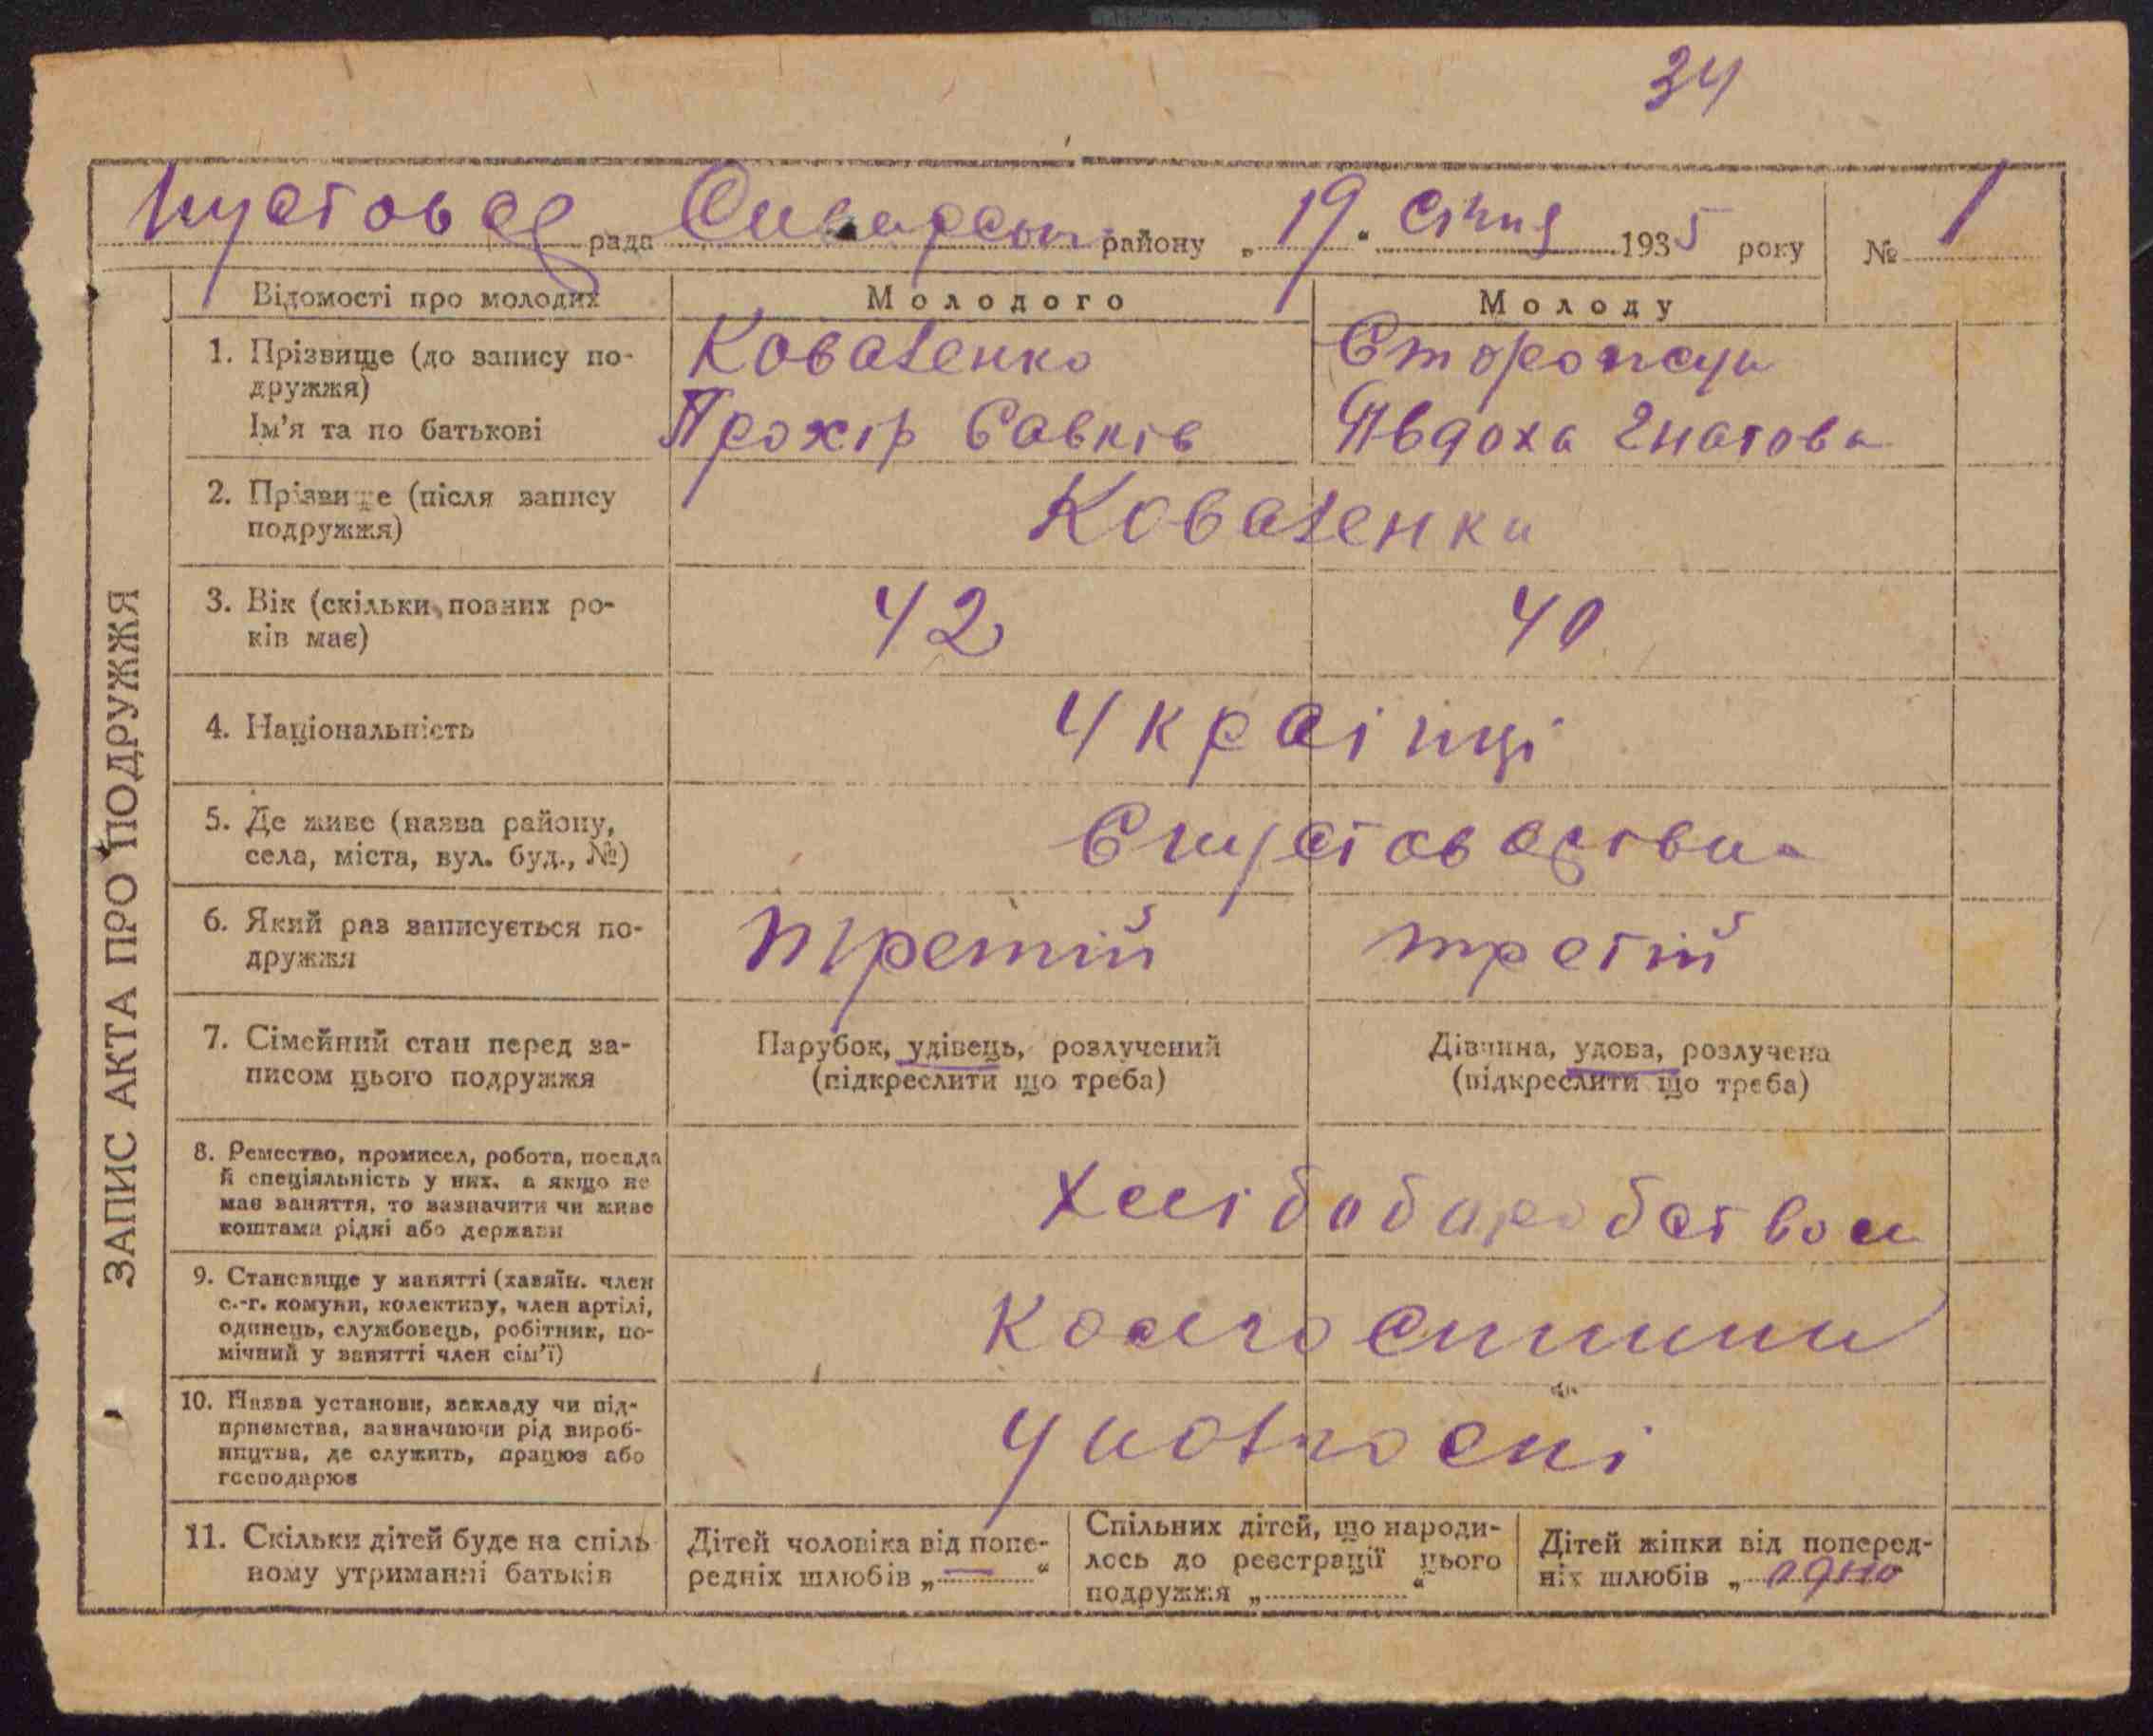 34
рада району „19“ січня 1935 року № 1
Відомості про молодих Молодого Молоду
1. Прізвище (до запису по-
дружжя)
Коваченко
Ім'я та по батькові
Прохір Савків Явдоха Гнатова
2. Прізвище (після запису
подружжя)
Коваченки
3. Вік (скільки повних ро-
ків має)
42 40
4. Національність
Українці
5. Де живе (назва району,
села, міста, вул. буд., №)
6. Який раз записується по-
дружжя
третій третій
7. Сімейний стан перед за-
писом цього подружжя
Парубок, удівець, розлучений
(підкреслити що треба)
Дівчина, удова, розлучена
(підкреслити що треба)
8. Ремество, промисел, робота, посада
й спеціяльність у них, а якщо не
має заняття, то зазначити чи живе
коштами рідні або держави
9. Становище у занятті (хазяїн, член
с.-г. комуни, колективу, член артілі,
одинець, службовець, робітник, по-
мічний у занятті член сім'ї)
10. Назва установи, закладу чи під-
приємства, зазначаючи рід вироб-
ництва, де служить, працює або
господарює
11. Скільки дітей буде на спіль
ному утриманні батьків
Дітей чоловіка від попе-
редніх шлюбів „—“
Спільних дітей, що народи-
лось до реєстрації цього
подружжя „ “
Дітей жінки від поперед-
ніх шлюбів „ одно
ЗАПИС АКТА ПРО ПОДРУЖЖЯ